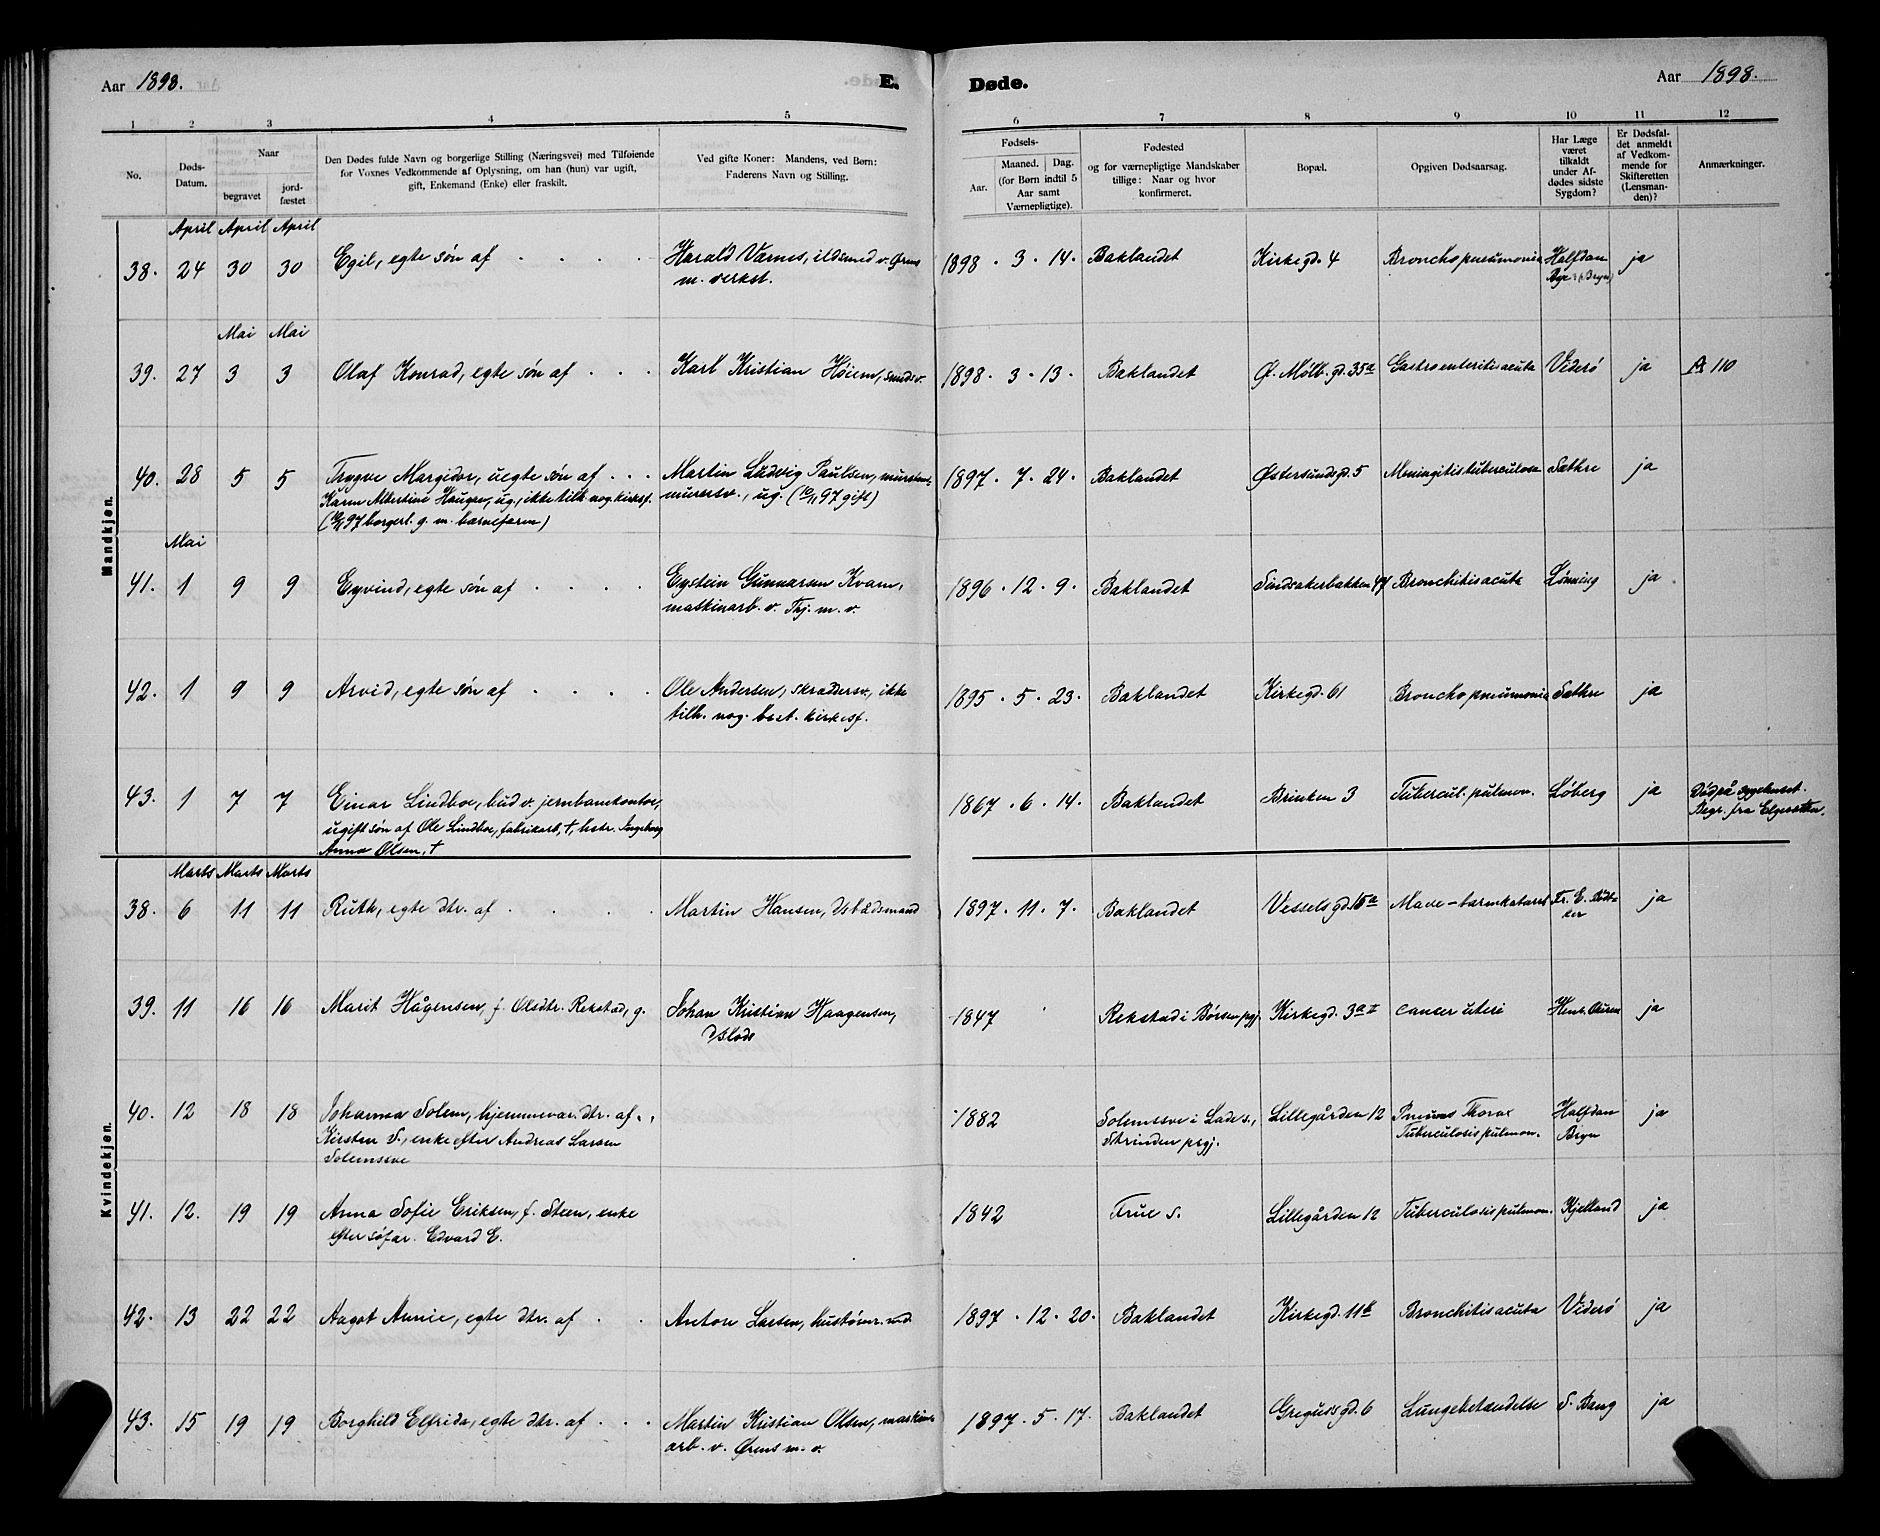 Aar 1898. E. Døde. Aar 1898.
1 2 3 4 5 6 7 8 9 10 11 12
No.
Døds-
Datum.
Naar
begravet
jord-
fæstet
Den Dødes fulde Navn og borgerlige Stilling (Næringsvei) med Tilføiende
for Voxnes Vedkommende af Oplysning, om han (hun) var ugift,
gift, Enkemand (Enke) eller fraskilt.
Ved gifte Koner: Mandens, ved Børn:
Faderens Navn og Stilling.
Fødsels-
Aar.
Maaned. Dag.
(for Børn indtil 5
Aar samt
Værnepligtige).
Fødested
og for værnepligtige Mandskaber
tillige: Naar og hvor
konfirmeret.
Bopæl.
Opgiven Dødsaarsag.
Har Læge
været
tilkaldt
under Af-
dødes sidste
Sygdom?
Er Dødsfal-
det anmeldt
af Vedkom-
mende for
Skifteretten
(Lensman-
den)?
Anmærkninger.
Mandkjøn.
April April April
38. 24 30 30 Egil, egte søn af Harald Værnes, ildsmed v. Ørens 1898 . 3 . 14. Baklandet Kirkegd. 4 Bronchopneumonia Halfdan ja
m. verkst.
Mai Mai
39. 27 3 3 Olaf Konrad, egte søn af Karl Kristian Høiem, smedsv. 1898 . 3 . 13. Baklandet Ø. Møllb. gd. 35a Gastroenteritis acuta Viderö ja A 110
40. 28 5 5 Trygve Margidor, uegte søn af Martin Ludvig Paulsen, 1897 . 7 . 24. Baklandet Østersundsgd. 5 Meningitis tuberculosa Sæthre ja
Karen Albertine Haugen, ug., ikke tilh. nog. kirkesf. murersv., ug. (10/11 97 gift)
(10/11 97 borgerl. g. m. barnefaren)
Mai
41. 1 9 9 Eyvind, egte søn af Eystein Gunnarsen Kvam, 1896 . 12 . 9. Baklandet Bronchitis acuta Lønning ja
maskinarb. v. Thj. m. v.
42. 1 9 9 Arvid, egte søn af Ole Andersen, skræddersv., ikke 1895 . 5 . 23. Baklandet Kirkegd. 61 Bronchopneumonia Sæthre ja
tilh. nog. best. kirkesf.
43. 1 7 7 Einar Lindboe, bud v. jernbanekontor, 1867 . 6 . 14. Baklandet Brinken 3 Tubercul. pulmon. Løberg ja Død på sygehuset.
ugift søn af Ole Lindboe, fabrikarb. †, hstr. Ingeborg Begr. fra
Anna Olsen, †
Kvindekjøn.
Marts Marts Marts
38. 6 11 11 Ruth, egte dtr. af Martin Hansen, 1897 . 11 . 7. Baklandet Vesselsgd. 16a Mave-tarmkatarrh Fr. E. ja
39. 11 16 16 Marit Hågensen, f. Olsdtr. Rekstad, g. Johan Kristian Haagensen, 1847 Rekstad i Børsen pgj. Kirkegd. 3a II cancer uteri ja
40. 12 18 18 Johanna Solem, hjemmevær. dtr. af 1882 Solemsve i Lade s., Lillegården 12 Pneumo Thorax Halfdan ja
Kirsten S., enke efter Andreas Larsen Strinden prgj. Tuberculosis pulmon. Bryn
Solemsve
41. 12. 19 19 Anna Sofie Eriksen, f. Steen, enke 1842 Frue s. Lillegården 12 Tuberculosis pulmon. Kjelland ja
efter søfar. Edvard E.
42. 13 22 22 Aagot Annie, egte dtr. af Anton Larsen, hustømr. 1897 . 12 . 20. Baklandet Kirkegd. 11b Bronchitis acuta Viderö ja
43. 15 19 19 Borghild Elfrida, egte dtr. af Martin Kristian Olsen, maskin- 1897 . 5 . 17. Baklandet Gregusgd. 6 Lungebetændelse S. Bang ja
arb. v. Ørens m. v.